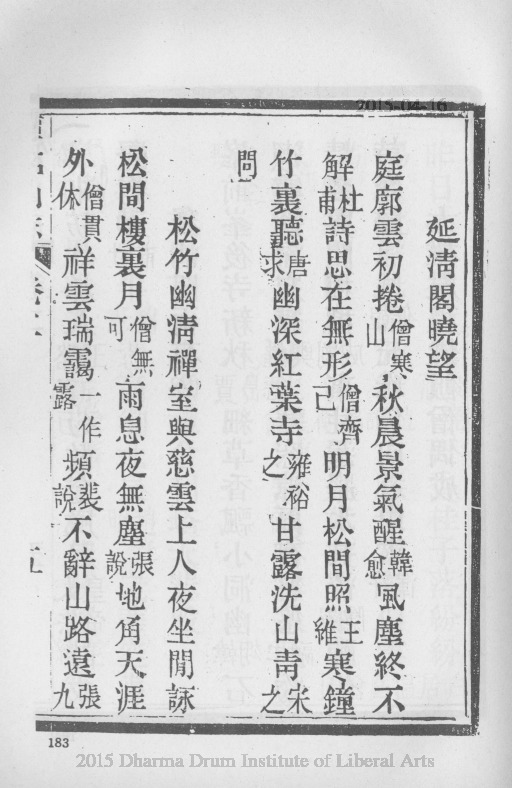 2015-04-16
延淸閣曉望
庭廓雲初捲僧寒山秋晨景氣醒韓愈風塵終不
解杜甫詩思在無形僧齊己明月松間照王維寒鐘
竹裏聽唐求幽深紅葉寺雍裕之甘露洗山靑宋之
問
松竹幽淸禪室與慈雲上人夜坐閒詠
松間樓裏月僧無可雨息夜無塵張說地角天涯
外僧貫休祥雲瑞靄一作露頻裴說不辭山路遠張九
183
2015 Dharma Drum Institute of Liberal Arts